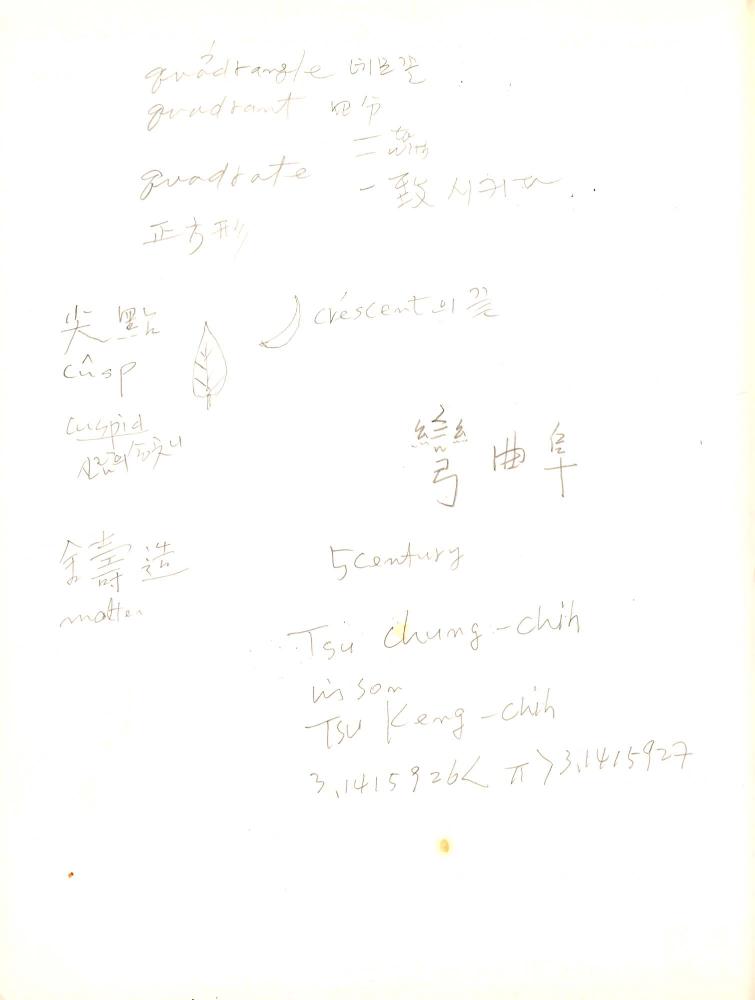 quádrangle 네모꼴
quadrant 四分
quadrate
一致시키다
正方形
尖點
cúsp
créscent의 끝
cuspid
彎曲阜
鑄造
matter
5 century
Tsu Chung-chih
his son
Tsu Keng-chih
3.1415926< π >3.1415927